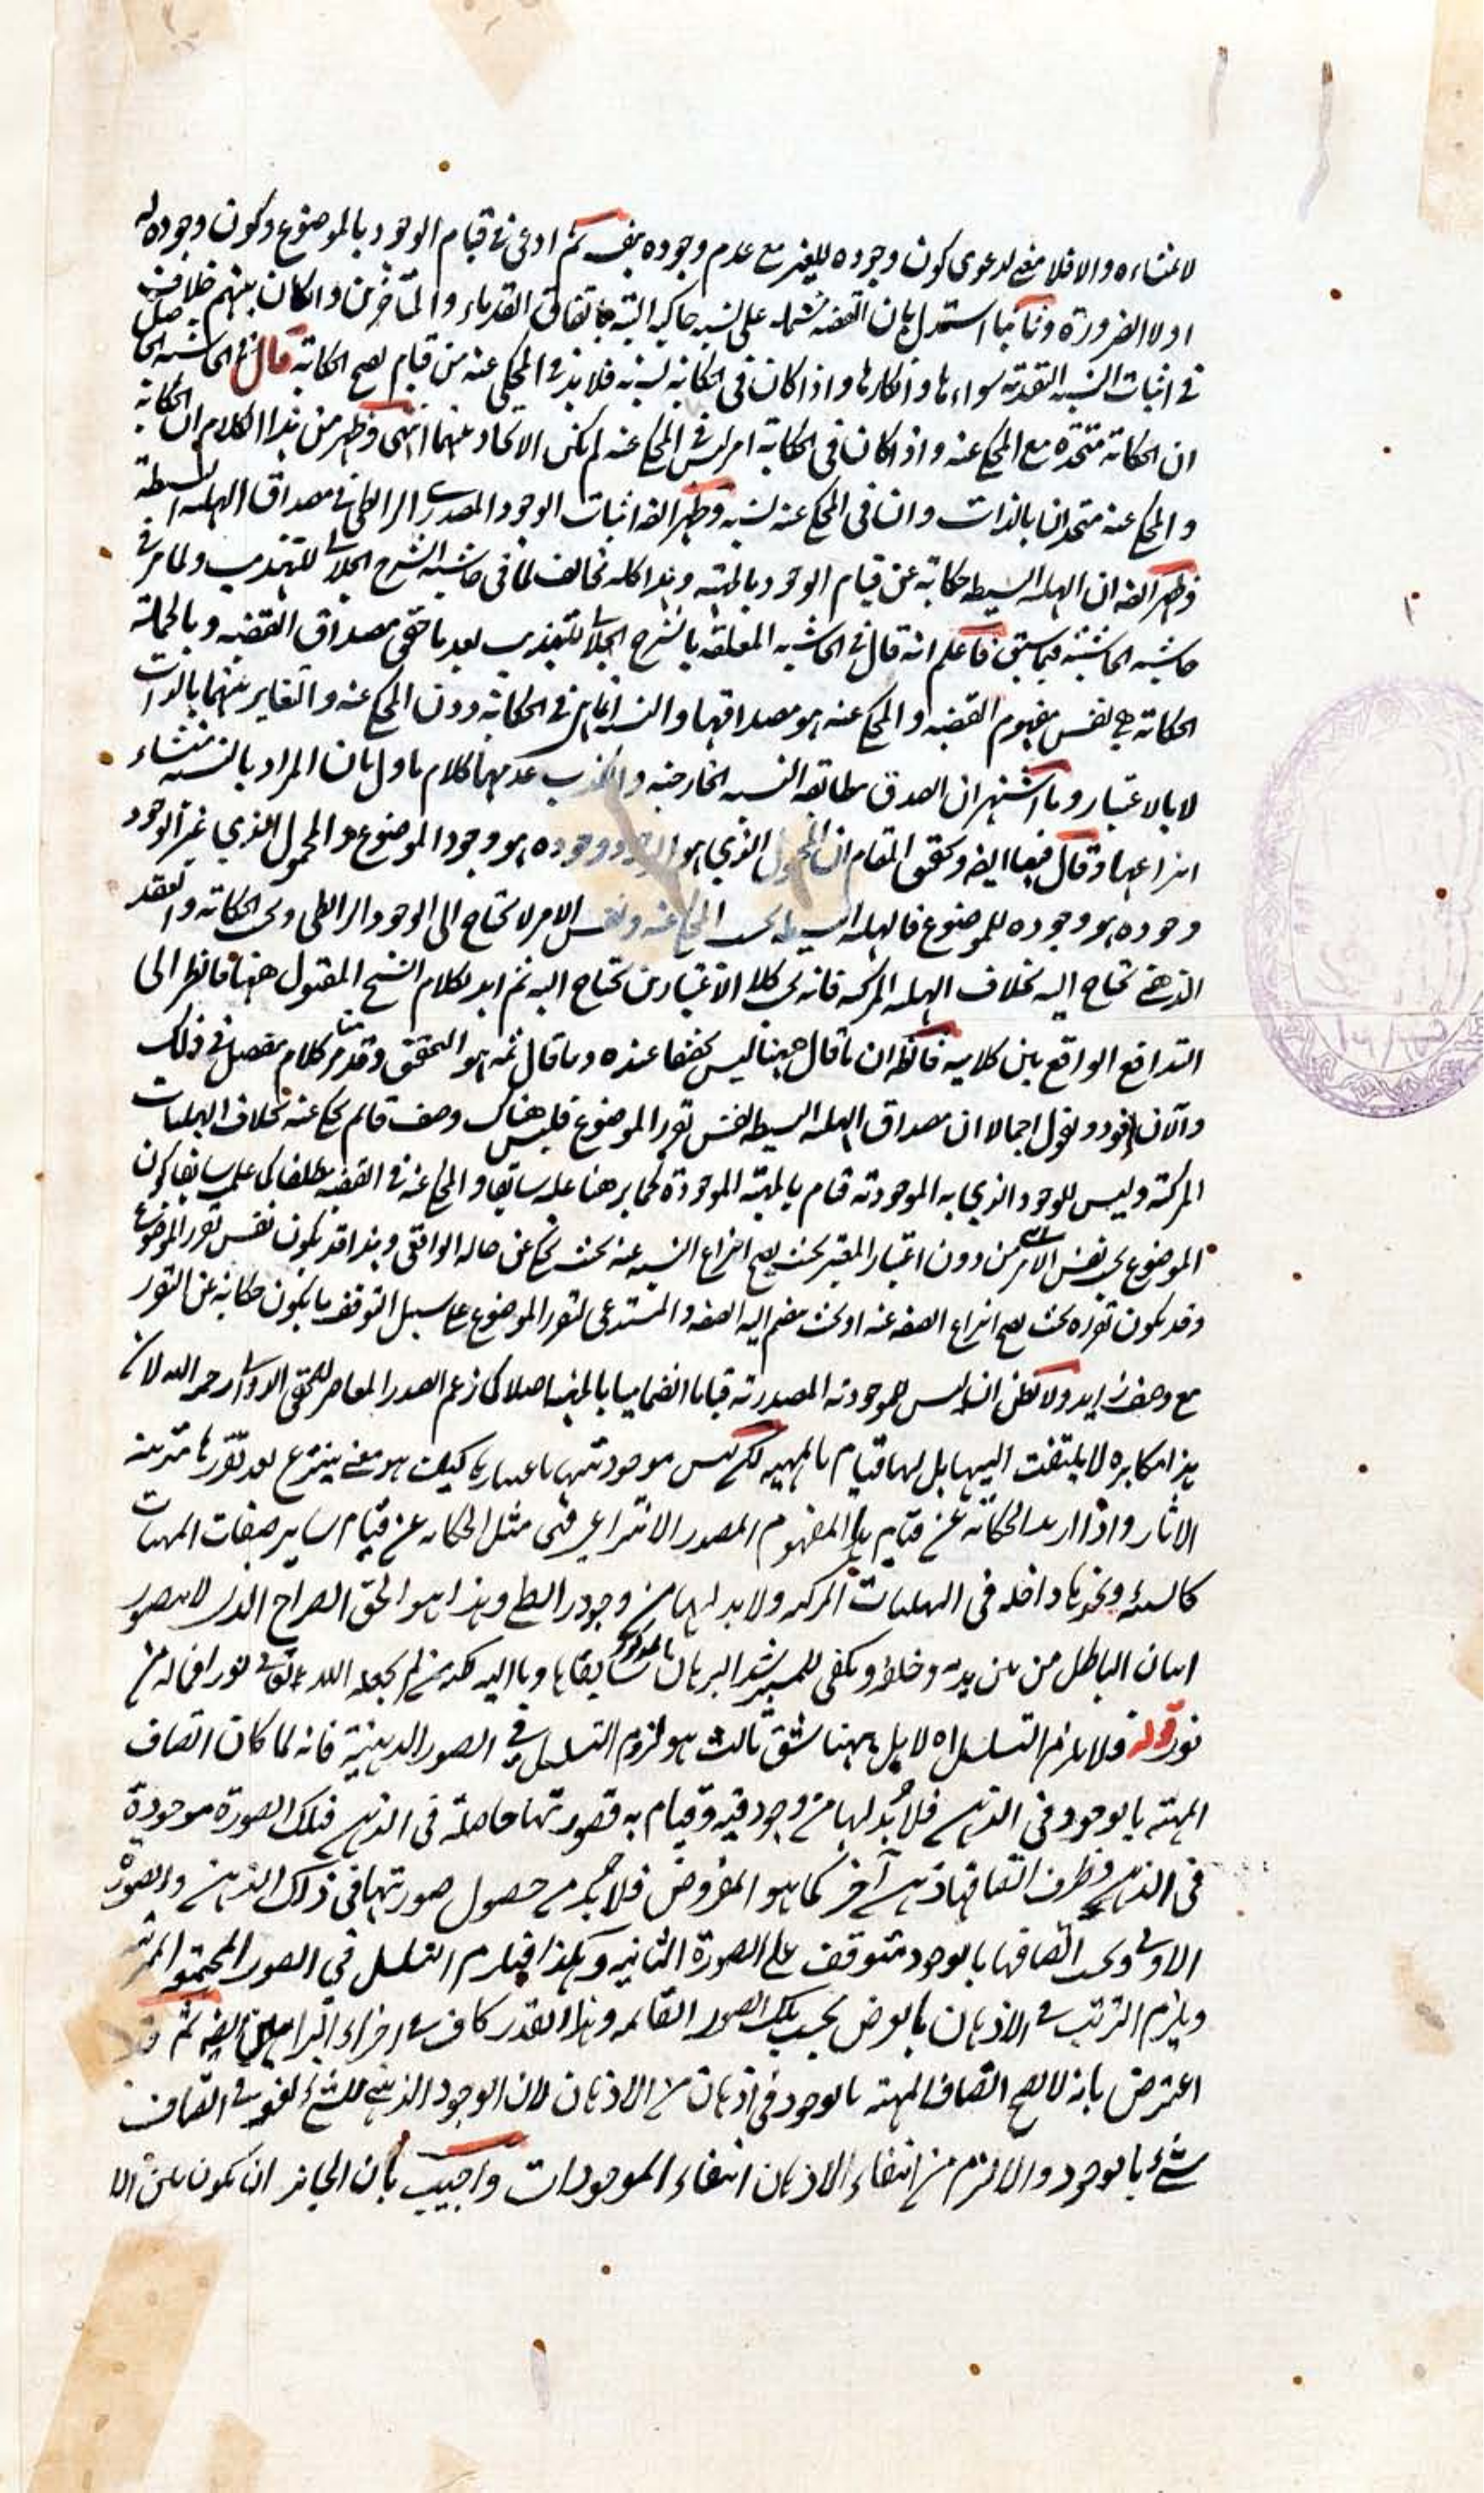 لامتناعه والا فلا معنى لدعوى كون وجوده للغير مع عدم وجوده بنفسه ثم ادعى في قيام الوجود بالموضوع وكون وجوده له
اولا الضرورة وثانيا استدل بان القضية مشتملة على نسبة حاكية البتة باتفاق القدماء والمتأخرين وان كان بينهم خلاف
في اثبات النسبة التقييدية سواءها وانكارها واذا كان في الحكاية نسبة فلا بد في المحكي عنه من قيام يصح الحكاية قال في الحاشية الحاصل
ان الحكاية متحدة مع المحكي عنه واذا كان في الحكاية امر ليس في المحكي عنه لم يكن الاتحاد بينهما انتهى وظهر من هذا الكلام ان الحكاية
والمحكي عنه متحدان بالذات وان في المحكي عنه نسبة وظهر ايضا اثبات الوجود المصدري الرابطي في مصداق الهلية البسيطة
وظهر ايضا ان الهلية البسيطة حكاية عن قيام الوجود بالمهية وهذا كله مخالف لما في حاشية الشرح الجلالي للتهذيب ولما مر في
حاشية الحاشية فيما سبق فاعلم انه قال في الحاشية المعلقة بالشرح الجلالي للتهذيب بعد ما حقق مصداق القضية وبالجملة
الحكاية هي نفس مفهوم القضية والمحكي عنه هو مصداقها والنسبة انما هي في الحكاية دون المحكي عنه والتغاير بينهما بالذات
لا بالاعتبار وما اشتهر ان الصدق مطابقة النسبة الخارجية والكذب عدمها كلام ماول بان المراد بالنسبة منشاء
انتزاعها وقال فيها ايضا وتحقق المقام ان المحمول الذي هو الوجود وجوده هو وجود الموضوع والمحمول الذي غير الوجود
وجوده هو وجوده للموضوع فالهلية البسيطة بحسب المحكي عنه ونفس الامر لا تحتاج الى الوجود الرابطي وبحسب الحكاية والعقد
الذهني تحتاج اليه بخلاف الهلية المركبة فانه بكلا الاعتبارين تحتاج اليه ثم ايد بكلام الشيخ المقبول ههنا فانظر الى
التدافع الواقع بين كلاميه فانظر ان ما قال ههنا ليس تحقيقا عنده وما قال ثمه هو التحقيق وقد مر منا كلام مفصل في ذلك
والآن نعود ونقول اجمالا ان مصداق الهلية البسيطة نفس تقرر الموضوع فليس هناك وصف قائم يحكي عنه بخلاف الهليات
المركبة وليس للوجود الذي به الموجودية قيام بالمهية الموجودة كما برهنا عليه سابقا والمحكي عنه في القضية مطلقا كما علمت سابقا كون
الموضوع بحسب نفس الامر من دون اعتبار المعتبر بحيث يصح انتزاع النسبة عنه بحيث يحكي عن حاله الواقعي وهذا قد يكون نفس تقرر الموضوع
وقد يكون تقرره بحيث يصح انتزاع الصفة عنه او بحيث ينضم اليه الصفة والمستدعي لتقرر الموضوع على سبيل التوقف ما يكون حكاية عن التقرر
مع وصف زايد ولا تظن انه ليس للموجودية المصدرية قياما انضماميا بالمهية اصلا كما زعم الصدر المعاصر للمحقق الدواني رحمه الله لان
هذا مكابرة لا يلتفت اليها بل لها قيام بالمهية لكن ليس موجوديتها باعتبارها كيف هو معنى ينتزع بعد تقررها مترتبة
الاثار واذا اريد الحكاية عن قيام هذا المفهوم المصدر الانتزاعي فهي مثل الحكاية عن قيام ساير صفات المهيات
كالشيئية ونحوها داخلة في الهليات المركبة ولا بد لها من وجود رابط وهذا هو الحق الصراح الذي لا يتصور
اتيان الباطل من بين يديه وخلفه ويكفي للمسترشد البرهان المذكور سابقا وما اليه هداية من لم يجعل الله تعالى له نورا فما له من
نور قوله فلا يلزم التسلسل اه لا بل ههنا شق ثالث هو لزوم التسلسل في الصور الذهنية فانه لما كان اتصاف
المهية بالوجود في الذهن فلا بد لها من وجود فيه وقيام به فصورتها حاصلة في الذهن فتلك الصورة موجودة
في الذهن وظرف اتصافها ذهن آخر كما هو المفروض فلا بد من حصول صورتها في ذلك الذهن والصورة
الاولى وبحسب اتصافها بالوجود متوقف على الصورة الثانية وهكذا فيلزم التسلسل في الصور المجتمعة المرتبة
ويلزم الترتب في الاذهان بالعرض بحسب تلك الصور القائمة وهذا القدر كاف في اجراء البراهين ايضا ثم
اعترض بانه لا يصح اتصاف المهية بالوجود في اذهان من الاذهان لان الوجود الذهني للشيء لغو في اتصاف
شيء بالوجود والا لزم من انتفاء الاذهان انتفاء الموجودات واجيب بان الجائز ان يكون بين الا